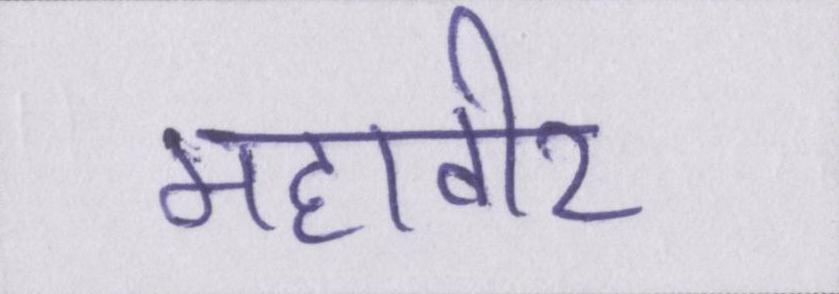 महावीर